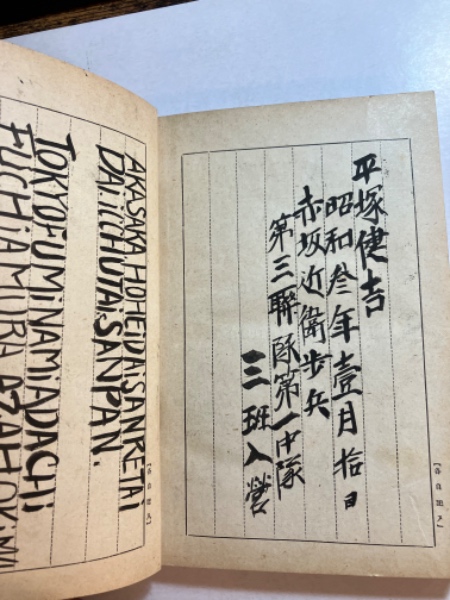 平塚健吉
昭和叁年壹月拾日
赤坂近衛歩兵
第三聯隊第一中隊
三班入營
AKASAKA HOHEiDAiSANRETAi
DAiiCCHUTAi.SANPAN.
TOKYOFUMiNAMiADACHi
FUCHiAMURA AZAHOK